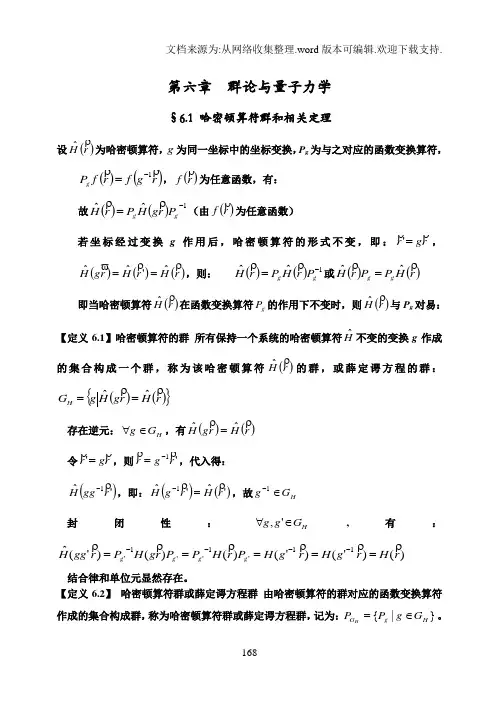 文档来源为:从网络收集整理.word版本可编辑.欢迎下载支持.
第六章 群论与量子力学
§6.1 哈密顿算符群和相关定理
设Ĥ(r⃗)为哈密顿算符，g为同一坐标中的坐标变换，P_g为与之对应的函数变换算符，
P_g f(r⃗)=f(g⁻¹r⃗)，f(r⃗)为任意函数，有：
故Ĥ(r⃗)=P_gĤ(gr⃗)P_g⁻¹（由f(r⃗)为任意函数）
若坐标经过变换g作用后，哈密顿算符的形式不变，即：r⃗'=gr⃗，
Ĥ(gr⃗)=Ĥ(r⃗')=Ĥ(r⃗)，则： Ĥ(r⃗)=P_gĤ(r⃗)P_g⁻¹或Ĥ(r⃗)P_g=P_gĤ(r⃗)
即当哈密顿算符Ĥ(r⃗)在函数变换算符P_g的作用下不变时，则Ĥ(r⃗)与P_g对易：
【定义6.1】哈密顿算符的群 所有保持一个系统的哈密顿算符Ĥ不变的变换g作成
的集合构成一个群，称为该哈密顿算符Ĥ(r⃗)的群，或薛定谔方程的群：
G_H={g|Ĥ(gr⃗)=Ĥ(r⃗)}
存在逆元：∀g∈G_H，有Ĥ(gr⃗)=Ĥ(r⃗)
令r⃗'=gr⃗，则r⃗=g⁻¹r⃗'，代入得：
Ĥ(gg⁻¹r⃗')，即：Ĥ(g⁻¹r⃗')=Ĥ(r⃗')，故g⁻¹∈G_H
封闭性：∀g,g'∈G_H，有：
Ĥ(gg'r⃗)=P_g'⁻¹H(gr⃗)P_g'=P_g'⁻¹H(r⃗)P_g'=H(g'⁻¹r⃗)=H(g'⁻¹r⃗)=H(r⃗)
结合律和单位元显然存在。
【定义6.2】 哈密顿算符群或薛定谔方程群 由哈密顿算符的群对应的函数变换算符
作成的集合构成群，称为哈密顿算符群或薛定谔方程群，记为：P_{G_H}={P_g|g∈G_H}。
168